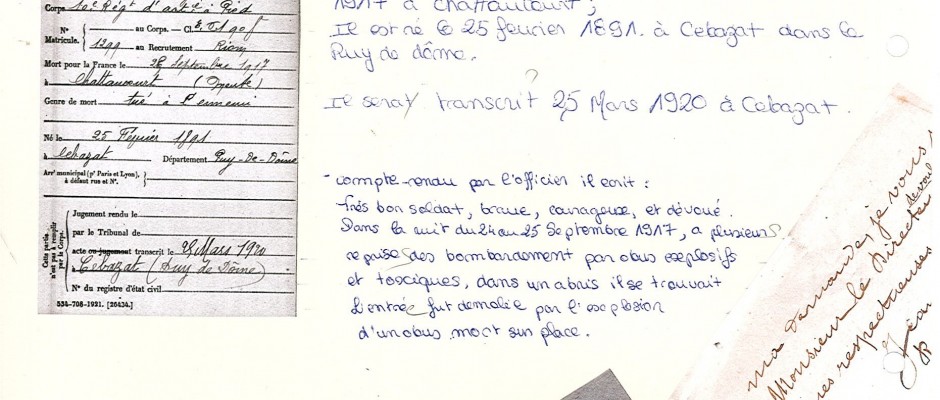 Corps 10e Régt d'artie à Pied
N° Matricule. au Corps. — Cl.
1299 au Recrutement Riom
Mort pour la France le 28 Septembre 1917
à Chattancourt (Meuse)
Genre de mort tué à l'ennemi
Né le 25 Février 1891
à Cébazat Département Puy-De-Dôme
Arrt municipal (pr Paris et Lyon),
à défaut rue et N°.
Cette partie n'est pas à remplir par le Corps.
Jugement rendu le
par le Tribunal de
acte ou jugement transcrit le 25 Mars 1920
à Cébazat (Puy de Dôme)
N° du registre d'état civil
534-708-1921. [26434.]
1917 à Chattancourt;
Il est né le 25 fevrier 1891. à Cebazat dans le
Puy de dôme.
?
Il serat transcrit 25 Mars 1920 à Cebazat.
- compte-rendu par l'officier il ecrit :
Très bon soldat, brave, courageux, et dévoué.
Dans la nuit du 24 au 25 Septembre 1917, a plusieurs
reprises des bombardement par obus explosifs
et toxciques, dans un abris il se trouvait
L'entrée fut demolie par l'explosion
d'un obus mort sur place.
ma demande, je vous
Monsieur le Directeur
mes respectueuses
Jean